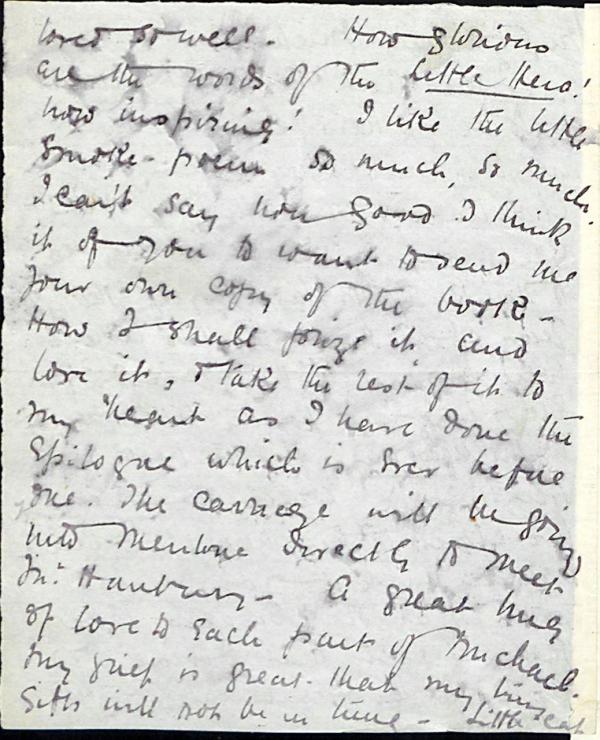 loved so well. How glorious
are the words of the Little Hero!
how inspiring! I like the little
Smoke-poem so much, so much.
I can't say how good I think
it of you to want to send me
your own copy of the book -
How I shall prize it and
love it, & take the rest of it to
my heart as I have done the
Epilogue which is ever before
me. The carriage will be going
into Mentone directly to meet
Mr. Hanbury - A great hug
of love to each part of Michael.
My grief is great that my tiny
Gifts will not be in time - Little cat